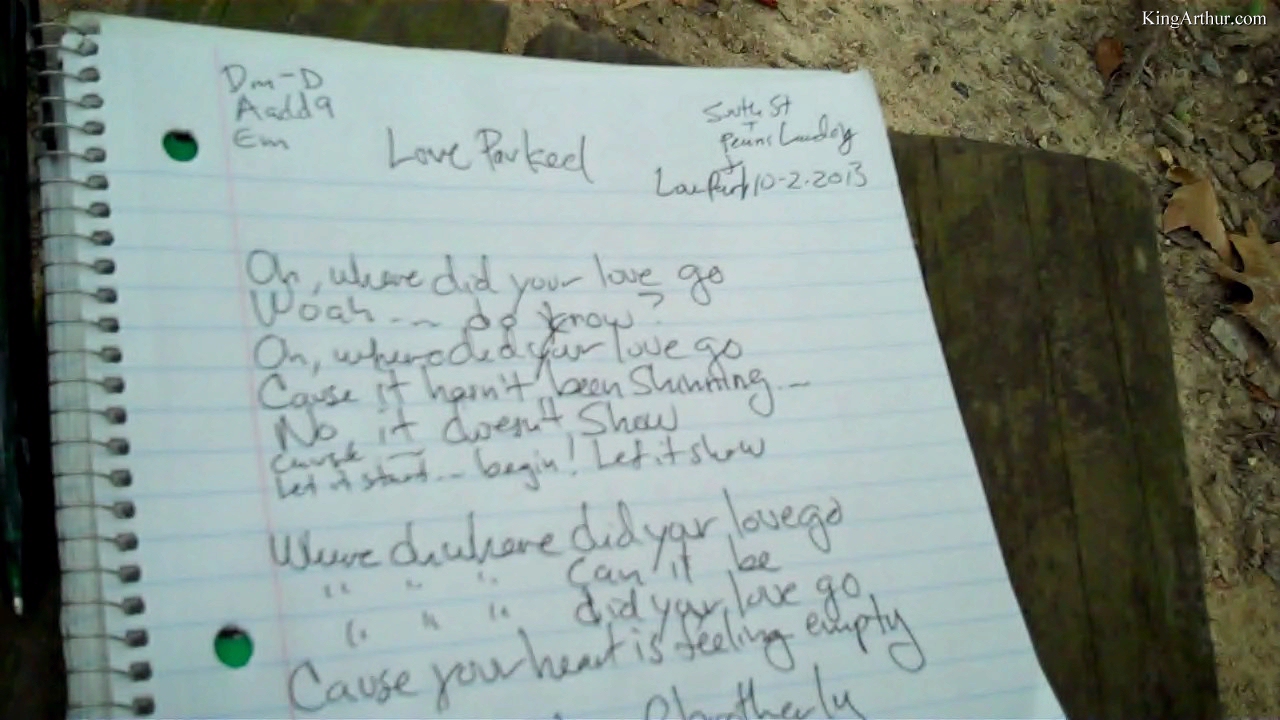 KingArthur.com
Dm-D
Aadd9
Em
Love Parked
South St
+
Penns Landing
+
Love Park 10-2-2013
Oh, where did your love go
Woah --- do know?
Oh, where did your love go
Cause it hasn't been Shinning --
No, it doesn't Show
cause
Let it start --- begin! Let it show
Where oh where did your love go
" " " can it be
" " " did your love go
Cause your heart is feeling empty